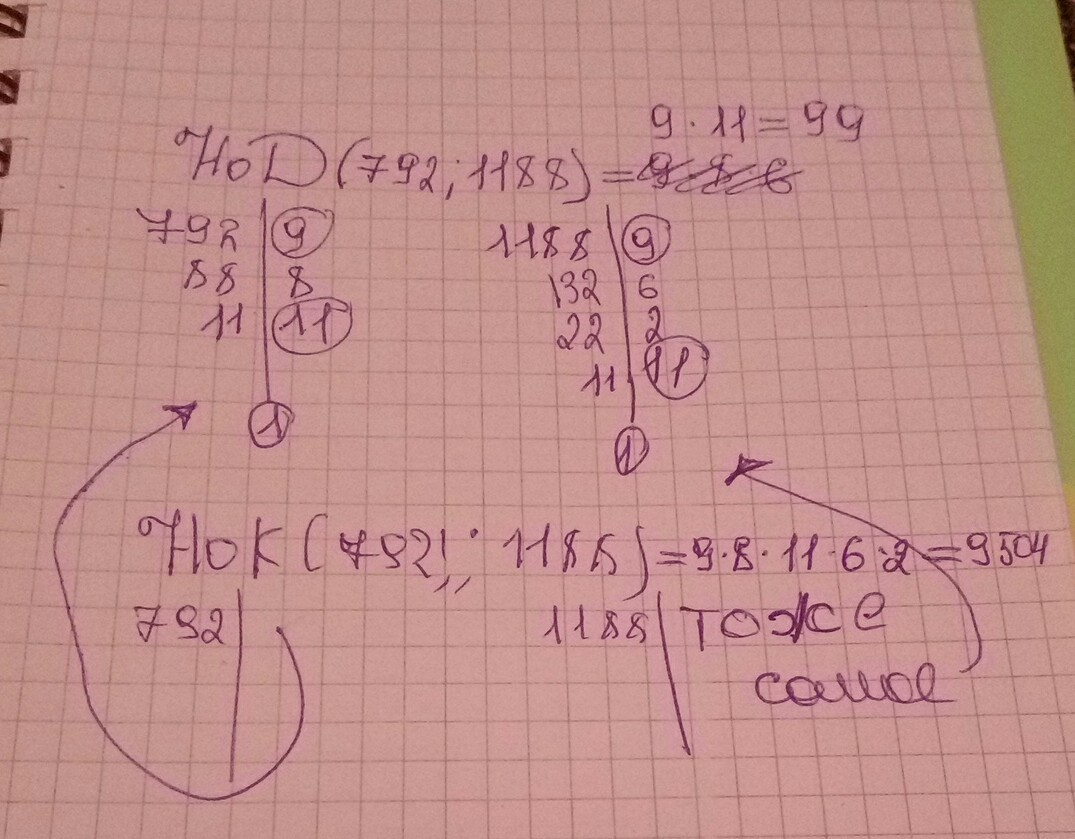 9 · 11 = 99
НоD (792; 1188) =
792 | 9
88 | 8
11 | 11
1
1188 | 9
132 | 6
22 | 2
11 | 11
1
НоК (792; 1188) = 9·8·11·6·2 = 9504
792 |
1188 | тоже
самое